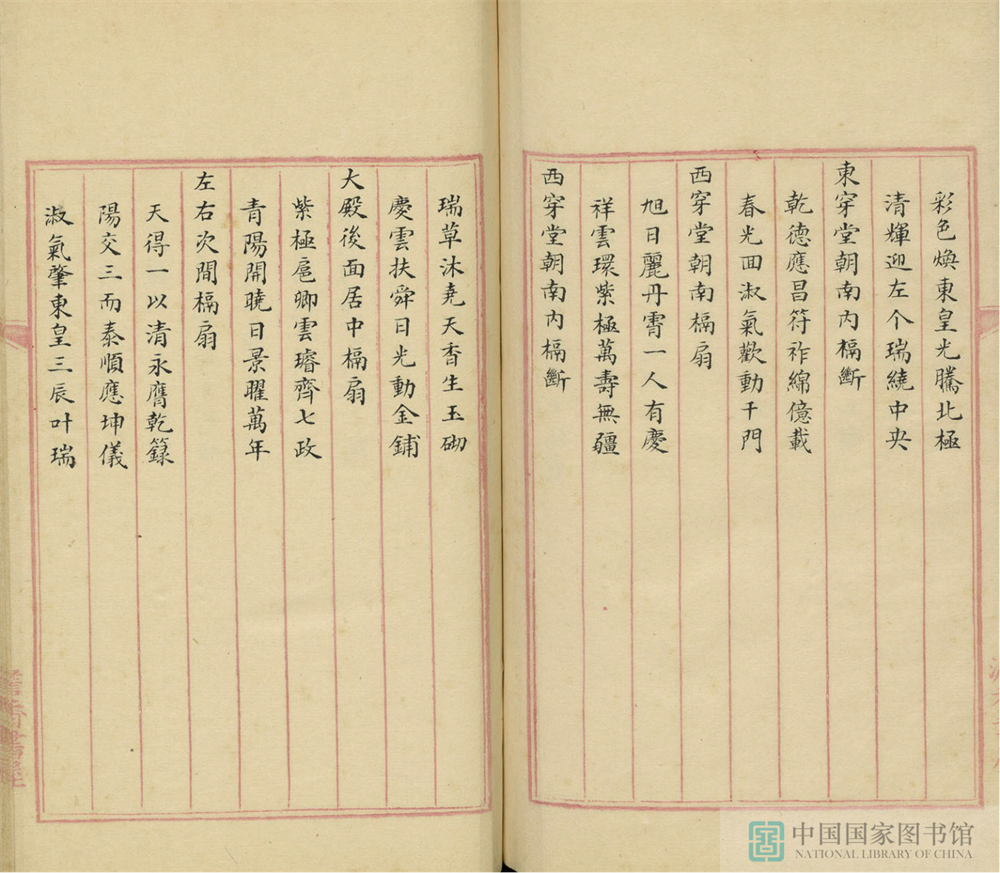 彩色煥東皇光騰北極
清輝迎左个瑞繞中央
東穿堂朝南內槅斷
乾德應昌符祚綿億載
春光回淑氣歡動千門
西穿堂朝南槅扇
旭日麗丹霄一人有慶
祥雲環紫極萬壽無疆
西穿堂朝南內槅斷
瑞草沐堯天香生玉砌
慶雲扶舜日光動金鋪
大殿後面居中槅扇
紫極扈卿雲璿齊七政
青陽開曉日景曜萬年
左右次間槅扇
天得一以清永膺乾籙
陽交三而泰順應坤儀
淑氣肇東皇三辰叶瑞
中国国家图书馆
NATIONAL LIBRARY OF CHINA